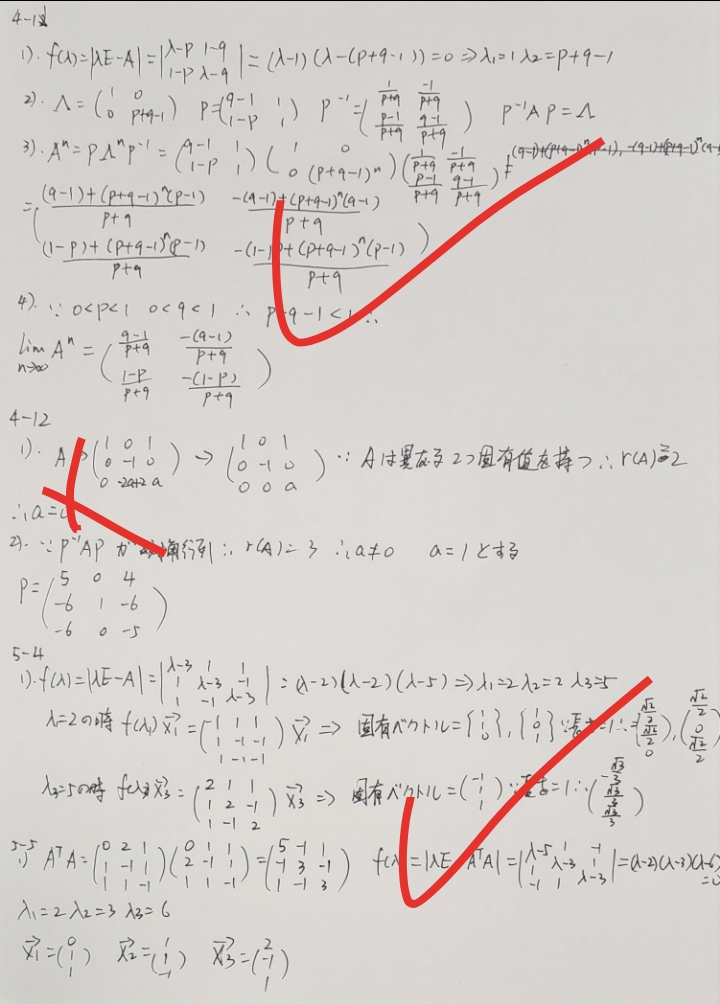 4-11
1). f(λ)=|λE-A|=|λ-p 1-q; 1-p λ-q|=(λ-1)(λ-(p+q-1))=0 ⇒λ1=1 λ2=p+q-1
2). Λ=(1 0; 0 p+q-1) P=(q-1 1; 1-p 1) P⁻¹=(1/(p+q) -1/(p+q); (p-1)/(p+q) (q-1)/(p+q)) P⁻¹AP=Λ
3). Aⁿ=PΛⁿP⁻¹=(q-1 1; 1-p 1)(1 0; 0 (p+q-1)ⁿ)(1/(p+q) -1/(p+q); (p-1)/(p+q) (q-1)/(p+q))
=(((q-1)+(p+q-1)ⁿ(p-1))/(p+q) (-(q-1)+(p+q-1)ⁿ(q-1))/(p+q)
((1-p)+(p+q-1)ⁿ(p-1))/(p+q) (-(1-p)+(p+q-1)ⁿ(p-1))/(p+q))
4). ∵ 0<p<1 0<q<1 ∴ p+q-1<1 ∴
lim n→∞ Aⁿ=((q-1)/(p+q) -(q-1)/(p+q); (1-p)/(p+q) -(1-p)/(p+q))
4-12
1). A→(1 0 1; 0 -1 0; 0 -2a+2 a)→(1 0 1; 0 -1 0; 0 0 a) ∵ Aは異なる2つ固有値を持つ∴r(A)=2
∴a=0
2). ∵P⁻¹APが 角行列∴r(A)=3 ∴a≠0 a=1とする
P=(5 0 4; -6 1 -6; -6 0 -5)
5-4
1).f(λ)=|λE-A|=|λ-3 1 1; 1 λ-3 -1; 1 -1 λ-3|=(λ-2)(λ-2)(λ-5)⇒λ1=2 λ2=2 λ3=5
λ=2の時 f(λ1)x1=(-1 1 1; 1 -1 -1; 1 -1 -1)x1 ⇒ 固有ベクトル={1 1 0},{1 0 1}∵長さ=1∴=(√2/2 √2/2 0),(√2/2 0 √2/2)
λ3=5の時 f(λ3)x3=(2 1 1; 1 2 -1; 1 -1 2)x3 ⇒ 固有ベクトル=(-1 1 1)∵長さ=1∴(-√3/3 √3/3 √3/3)
5-5
1) AᵀA=(0 2 1; 1 -1 1; 1 1 -1)(0 1 1; 2 -1 1; 1 1 -1)=(5 -1 1; -1 3 -1; 1 -1 3) f(λ)=|λE-AᵀA|=|λ-5 1 -1; 1 λ-3 1; -1 1 λ-3|=(λ-2)(λ-3)(λ-6)=0
λ1=2 λ2=3 λ3=6
x1=(0 1 1) x2=(1 1 -1) x3=(2 -1 1)